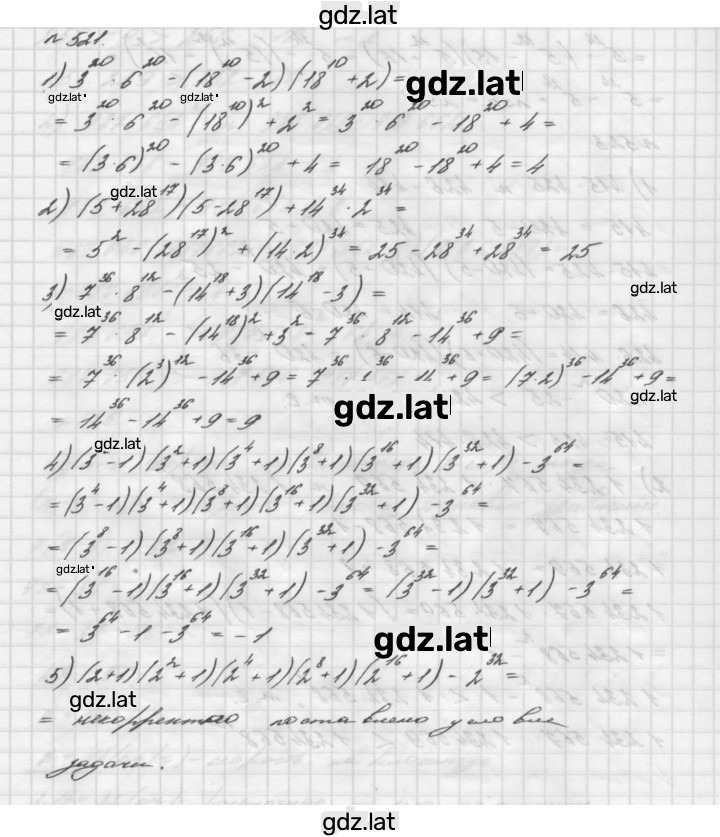 gdz.lat
n 521.
1) 3^20 · 6^20 - (18^10 - 2)(18^10 + 2) =
gdz.lat
gdz.lat
gdz.lat
= 3^20 · 6^20 - (18^10)^2 + 2^2 = 3^20 · 6^20 - 18^20 + 4 =
= (3·6)^20 - (3·6)^20 + 4 = 18^20 - 18^20 + 4 = 4
gdz.lat
2) (5+28^17)(5-28^17) + 14^34 · 2^34 =
= 5^2 - (28^17)^2 + (14·2)^34 = 25 - 28^34 + 28^34 = 25
3) 7^36 · 8^12 - (14^18 + 3)(14^18 - 3) =
gdz.lat
gdz.lat
= 7^36 · 8^12 - (14^18)^2 + 3^2 = 7^36 · 8^12 - 14^36 + 9 =
= 7^36 · (2^3)^12 - 14^36 + 9 = 7^36 · ^36 - 14^36 + 9 = (7·2)^36 - 14^36 + 9 =
gdz.lat
gdz.lat
= 14^36 - 14^36 + 9 = 9
gdz.lat
4) (3^2 - 1)(3^2 + 1)(3^4 + 1)(3^8 + 1)(3^16 + 1)(3^32 + 1) - 3^64 =
= (3^4 - 1)(3^4 + 1)(3^8 + 1)(3^16 + 1)(3^32 + 1) - 3^64 =
= (3^8 - 1)(3^8 + 1)(3^16 + 1)(3^32 + 1) - 3^64 =
gdz.lat
= (3^16 - 1)(3^16 + 1)(3^32 + 1) - 3^64 = (3^32 - 1)(3^32 + 1) - 3^64 =
= 3^64 - 1 - 3^64 = - 1
gdz.lat
5) (2+1)(2^2 + 1)(2^4 + 1)(2^8 + 1)(2^16 + 1) - 2^32 =
gdz.lat
= некорректно поставлено условие
задачи.
gdz.lat